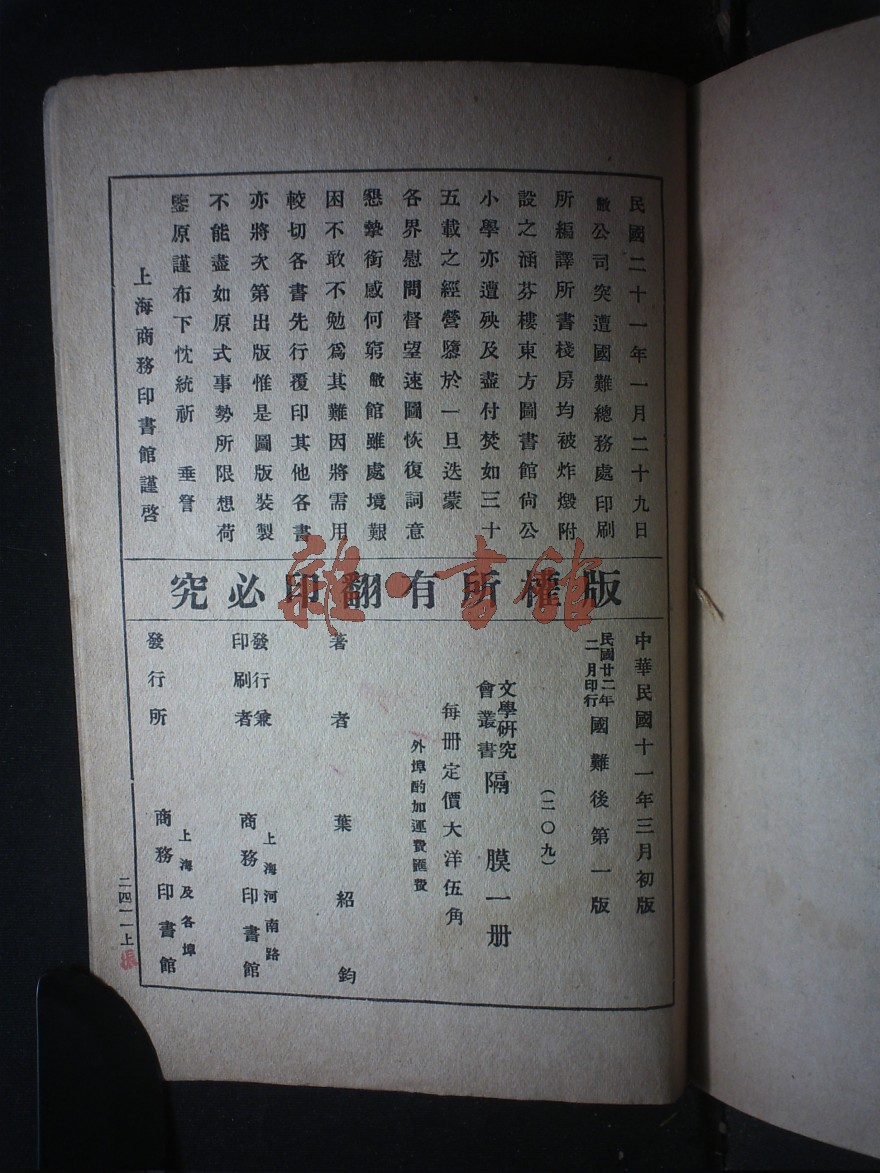 民國二十一年一月二十九日
敝公司突遭國難總務處印刷
所編譯所書棧房均被炸燬附
設之涵芬樓東方圖書館尙公
小學亦遭殃及盡付焚如三十
五載之經營隳於一旦迭蒙
各界慰問督望速圖恢復詞意
懇摯銜感何窮敝館雖處境艱
困不敢不勉爲其難因將需用
較切各書先行覆印其他各書
亦將次第出版惟是圖版裝製
不能盡如原式事勢所限想荷
鑒原謹布下忱統祈 垂詧
上海商務印書館謹啓
版權所有翻印必究
雜·書館
中華民國十一年三月初版
民國廿二年二月印行 國難後第一版
(二〇九)
文學研究會叢書 隔膜一册
每册定價大洋伍角
外埠酌加運費匯費
著者 葉紹鈞
發行兼印刷者 上海河南路 商務印書館
發行所 上海及各埠 商務印書館
二四一一上
張